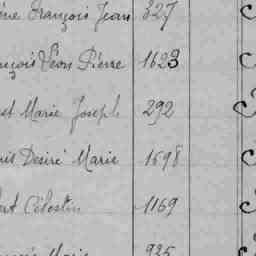 François Jean 327
François Léon Pierre 1623
Marie Joseph 292
Désiré Marie 1698
Célestin 1169
Marie 935